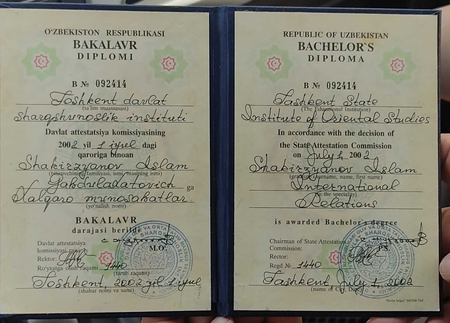 O'ZBEKISTON RESPUBLIKASI
BAKALAVR
DIPLOMI
B № 092414
Toshkent davlat
sharqshunoslik instituti
Davlat attestatsiya komissiyasining
2002 yil 1 iyul dagi
qaroriga binoan
Shakirzyanov Islam
Gabduladatovich ga
Xalqaro munosabatlar
BAKALAVR
darajasi berildi
Davlat attestatsiya
komissiyasi raisi
Rektor
M.O.
Ro'yxatga olish raqami 1440
Toshkent, 2002 yil 1 iyul
REPUBLIC OF UZBEKISTAN
BACHELOR`S
DIPLOMA
B № 092414
Tashkent State
(The Educational Institution)
Institute of Oriental Studies
In accordance with the decision of
the State Attestation Commission
on July 1, 2002
Shakirzyanov Islam
International
Relations
is awarded Bachelor`s degree
Chairman of State Attestation
Commission:
Rector:
Regd № 1440
Tashkent, July 1, 2002